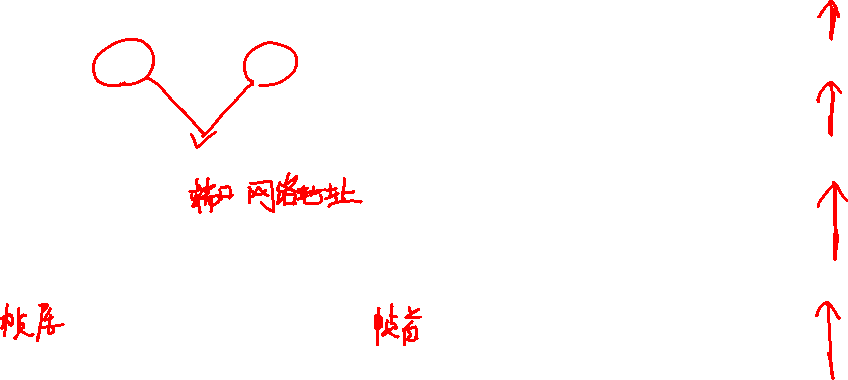 端口 网络地址
帧尾 帧首